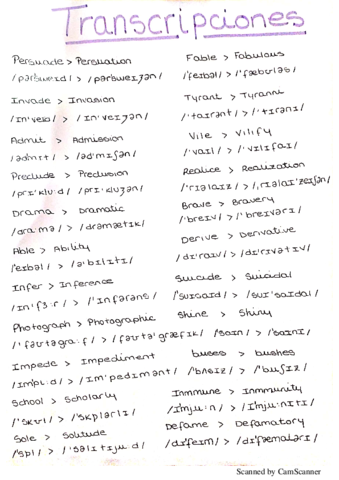 Transcripciones
Persuade > Persuation
/pərˈsweɪd/ > /pərˈsweɪʒən/
Invade > Invasion
/ɪnˈveɪd/ > /ɪnˈveɪʒən/
Admit > Admission
/ədmɪt/ > /ədˈmɪʃən/
Preclude > Preclusion
/prɪˈkluːd/ > /prɪˈkluʒən/
Drama > Dramatic
/draːmə/ > /drəmætɪk/
Able > Ability
/ˈeɪbəl/ > /əˈbɪlɪtɪ/
Infer > Inference
/ɪnˈfɜːr/ > /ˈɪnfərəns/
Photograph > Photographic
/ˈfəʊtəgraːf/ > /fəʊtəˈgræfɪk/
Impede > Impediment
/ɪmpiːd/ > /ɪmˈpedɪmənt/
School > Scholarly
Sole > Solitude
Fable > Fabulous
/ˈfeɪbəl/ > /ˈfæbʊləs/
Tyrant > Tyranny
/ˈtaɪrənt/ > /ˈtɪrənɪ/
Vile > Vilify
/ˈvaɪl/ > /ˈvɪlɪfaɪ/
Realice > Realization
/ˈrɪəlaɪz/ > /ˌrɪəlaɪˈzeɪʃən/
Brave > Bravery
/ˈbreɪv/ > /ˈbreɪvərɪ/
Derive > Derivative
/dɪˈraɪv/ > /dɪˈrɪvətɪv/
Suicide > Suicidal
/ˈsuɪsaɪd/ > /suɪˈsaɪdəl/
Shine > Shiny
/ʃaɪn/ > /ˈʃaɪnɪ/
buses > bushes
/ˈbʌsɪz/ > /ˈbuʃɪz/
Inmmune > Inmmunity
/ɪˈmjuːn/ > /ɪˈmjuːnɪtɪ/
Defame > Defamatory
/dɪˈfeɪm/ > /dɪˈfæmətərɪ/
Scanned by CamScanner